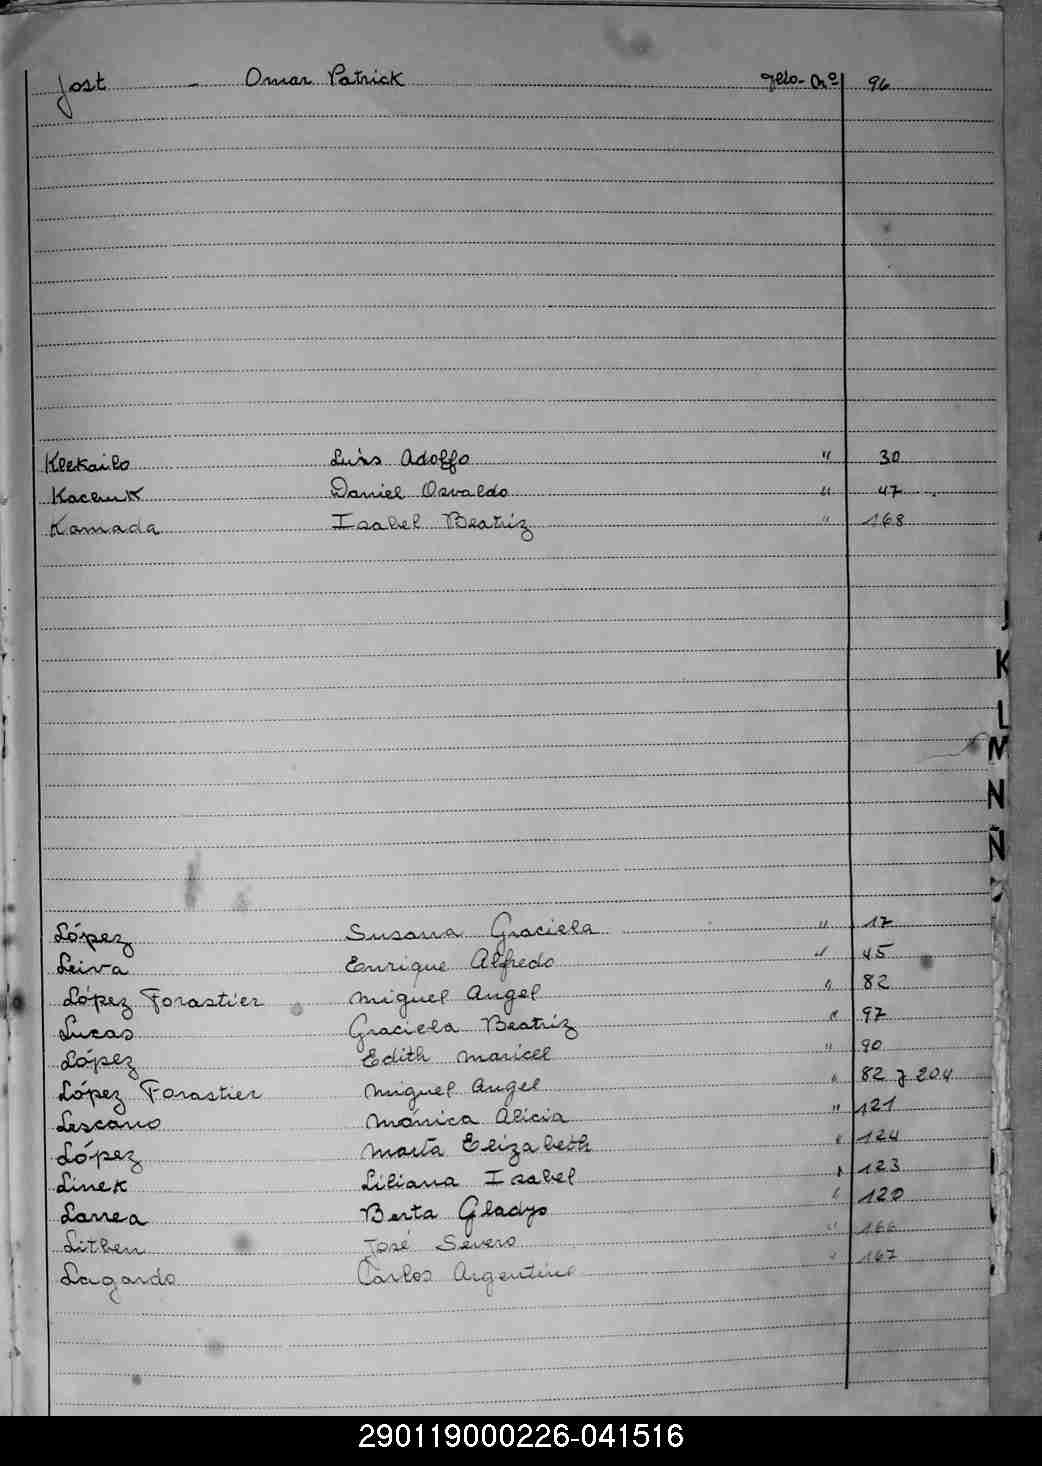 Jost - Omar Patrick Nº 96
Klekailo Luis Adolfo " 30
Kachuk Daniel Osvaldo " 47
Kamada Isabel Beatriz " 168
J
K
L
M
N
Ñ
López Susana Graciela " 17
Leiva Enrique Alfredo " 45
López Forastier Miguel Angel " 82
Lucas Graciela Beatriz " 97
López Edith Maricel " 90
López Forastier Miguel Angel " 82 y 204
Lescano Mónica Alicia " 121
López María Elizabeth " 124
Linek Liliana Isabel " 123
Larrea Berta Gladys " 120
José Severo " 166
Lagardo Carlos Argentino " 167
290119000226-041516